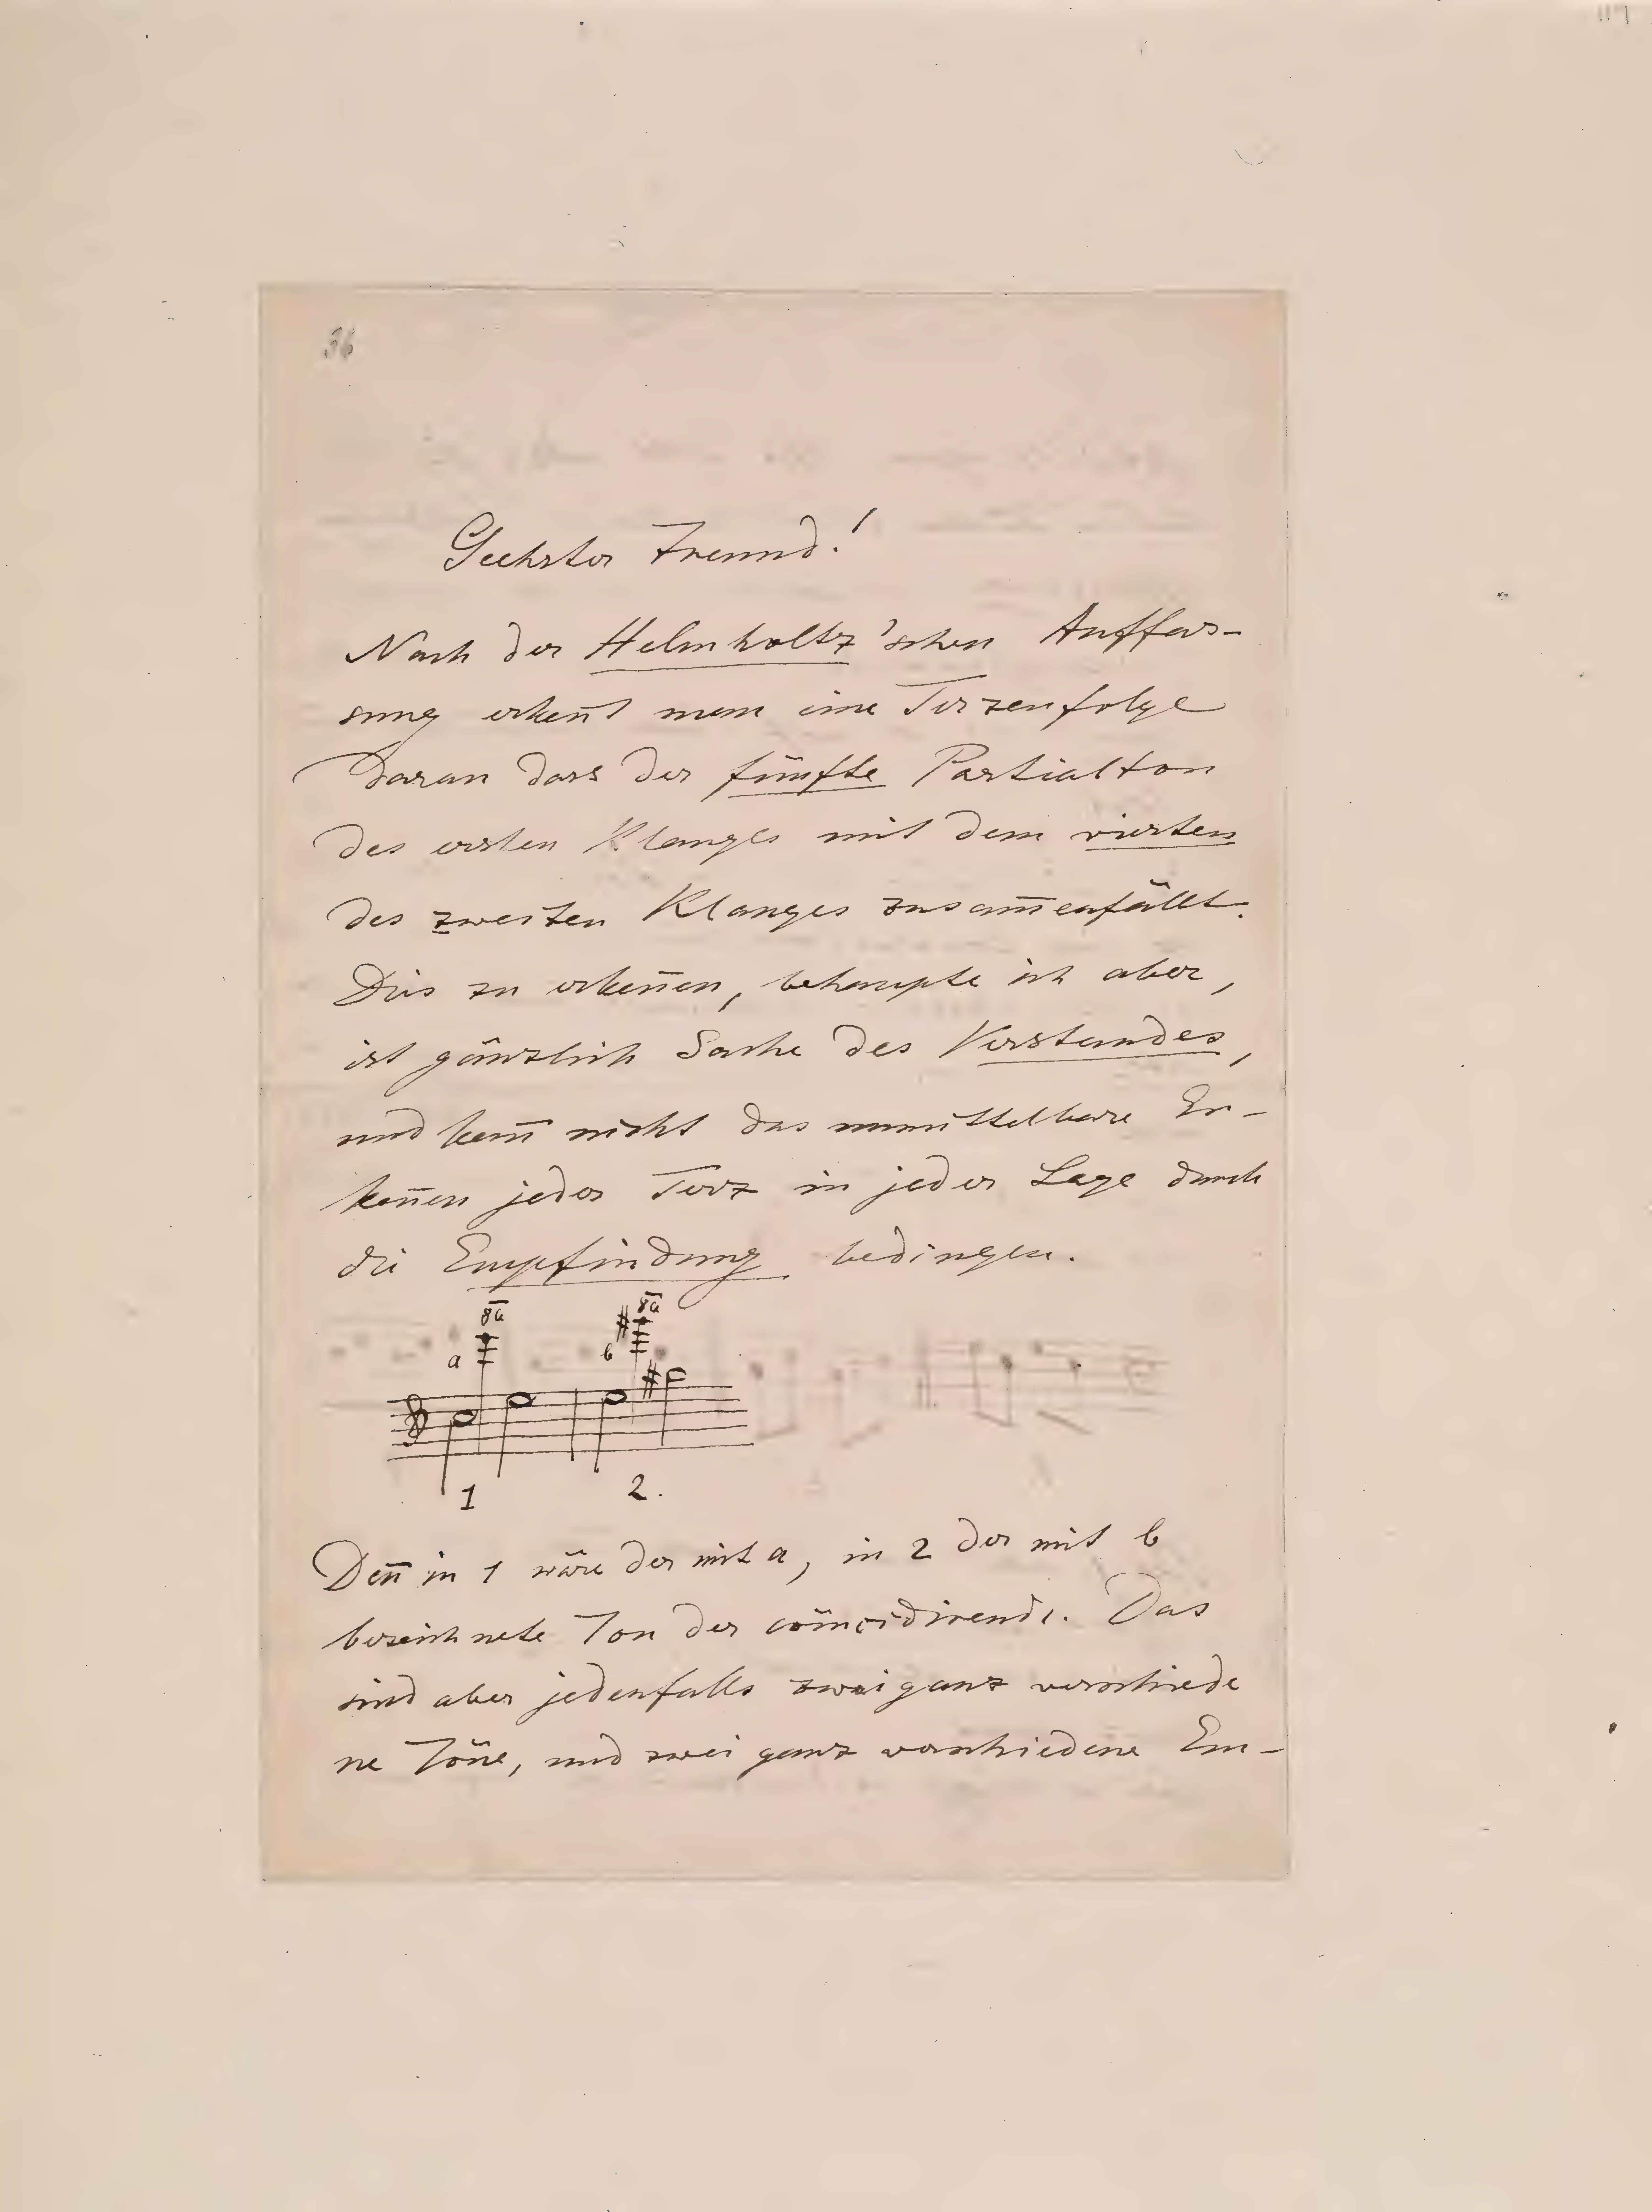 36
Geehrter Freund!
Nach der Helmholtz'schen Auffas-
sung erken̄t man eine Terzenfolge
daran dass der fünfte Partialton
des ersten Klanges mit dem vierten
des zweiten Klanges zusam̄enfällt.
Dies zu erken̄en, behaupte ich aber,
ist gänzlich Sache des Verstandes,
und kan̄ nicht das unmittelbare Er-
ken̄en jeder Terz in jeder Lage durch
die Empfindung bedingen.
8a 8a
a b
1 2.
Den̄ in 1 wäre der mit a, in 2 der mit b
bezeichnete Ton der coincidirende. Das
sind aber jedenfalls zwei ganz verschiede
ne Töne, und zwei ganz verschiedene Em-